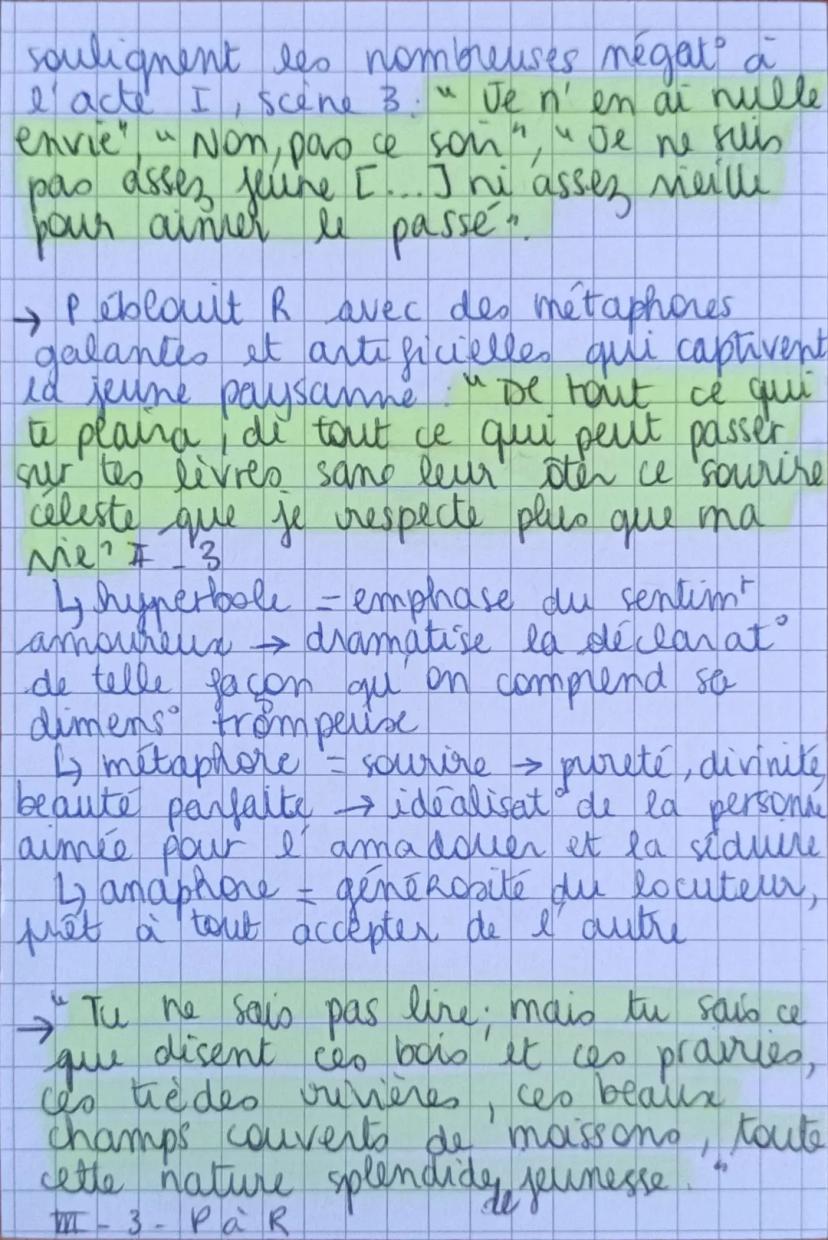 soulignent les nombreuses négat° à
l'acte I, scène 3 : "Je n'en ai nulle
envie", "Non, pas ce soir", "Je ne suis
pas assez jeune [...] ni assez vieille
pour aimer le passé".
→ P éblouit R avec des métaphores
galantes et artificielles qui captivent
la jeune paysanne : "De tout ce qui
te plaira, de tout ce qui peut passer
sur tes lèvres sans leur ôter ce sourire
céleste que je respecte plus que ma
vie" II - 3
↳ hyperbole = emphase du sentimt
amoureux → dramatise la déclarat°
de telle façon qu'on comprend sa
dimens° trompeuse
↳ métaphore = sourire → pureté, divinité,
beauté parfaite → idéalisat° de la personne
aimée pour l'amadouer et la séduire
↳ anaphore = générosité du locuteur,
prêt à tout accepter de l'autre
→ "Tu ne sais pas lire ; mais tu sais ce
que disent ces bois et ces prairies,
ces tièdes rivières, ces beaux
champs couverts de moissons, toute
cette nature splendide de jeunesse."
III - 3 - P à R